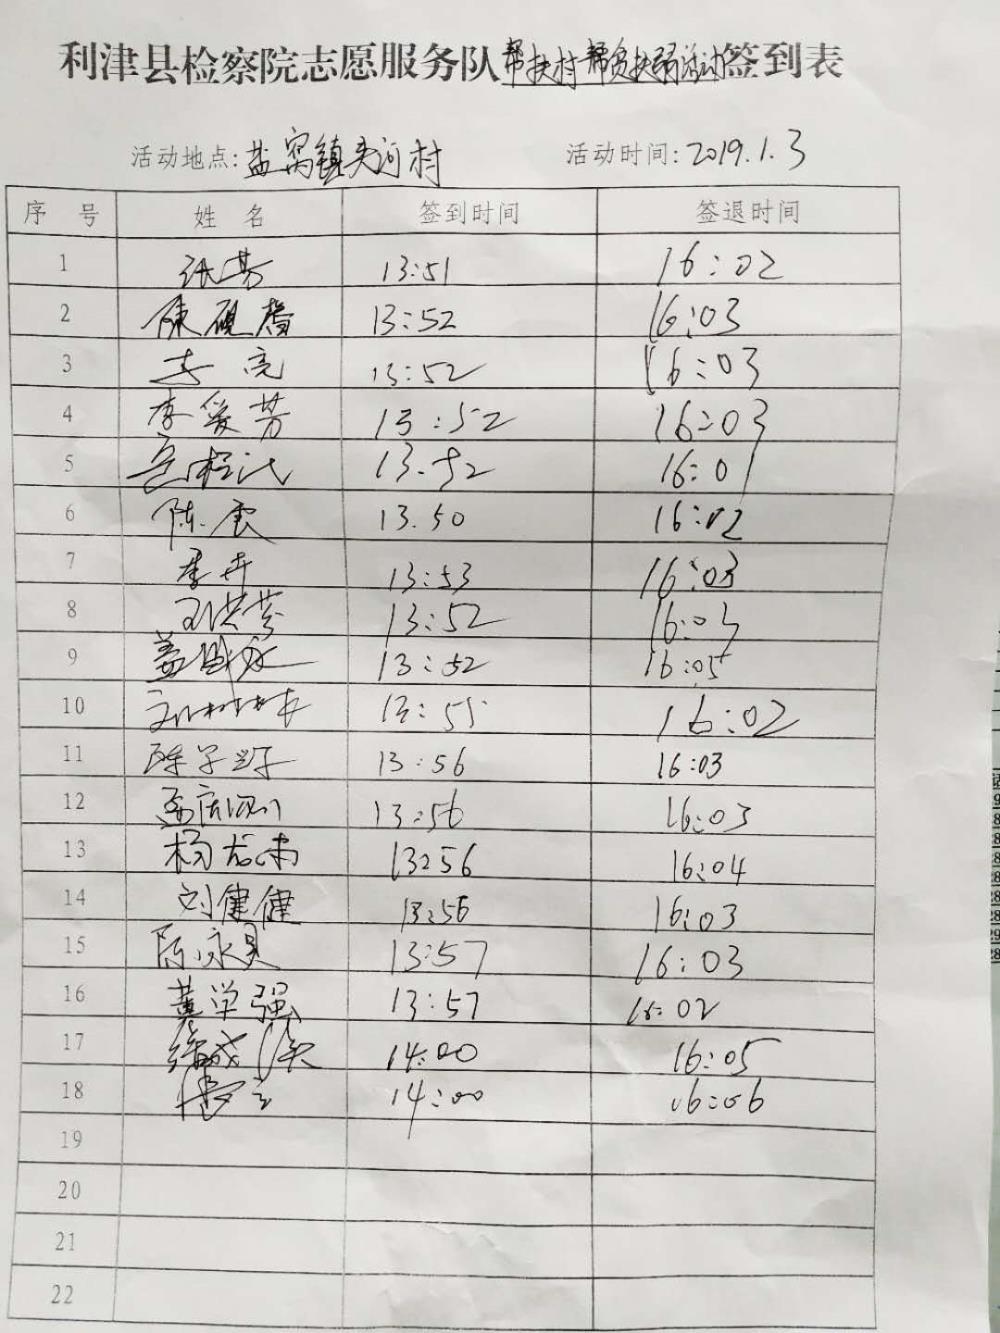 利津县检察院志愿服务队帮扶村帮贫扶弱活动签到表
活动地点:盐窝镇夹河村 活动时间:2019.1.3
序 号 姓 名 签到时间 签退时间
1 张芳 13:51 16:02
2 陈砚馨 13:52 16:03
3 李亮 13:52 16:03
4 李爱芳 13:52 16:03
5 13.52 16:01
6 陈震 13.50 16:02
7 李卉 13:53 16:03
8 王洪芬 13:52 16:03
9 盖 13:52 16:05
10 13:55 16:02
11 陈学 13:56 16:03
12 孟庆 13:56 16:03
13 杨龙 13:56 16:04
14 刘健健 13:56 16:03
15 陈永 13:57 16:03
16 学强 13:57 16:02
17 14:00 16:05
18 14:00 16:06
19
20
21
22